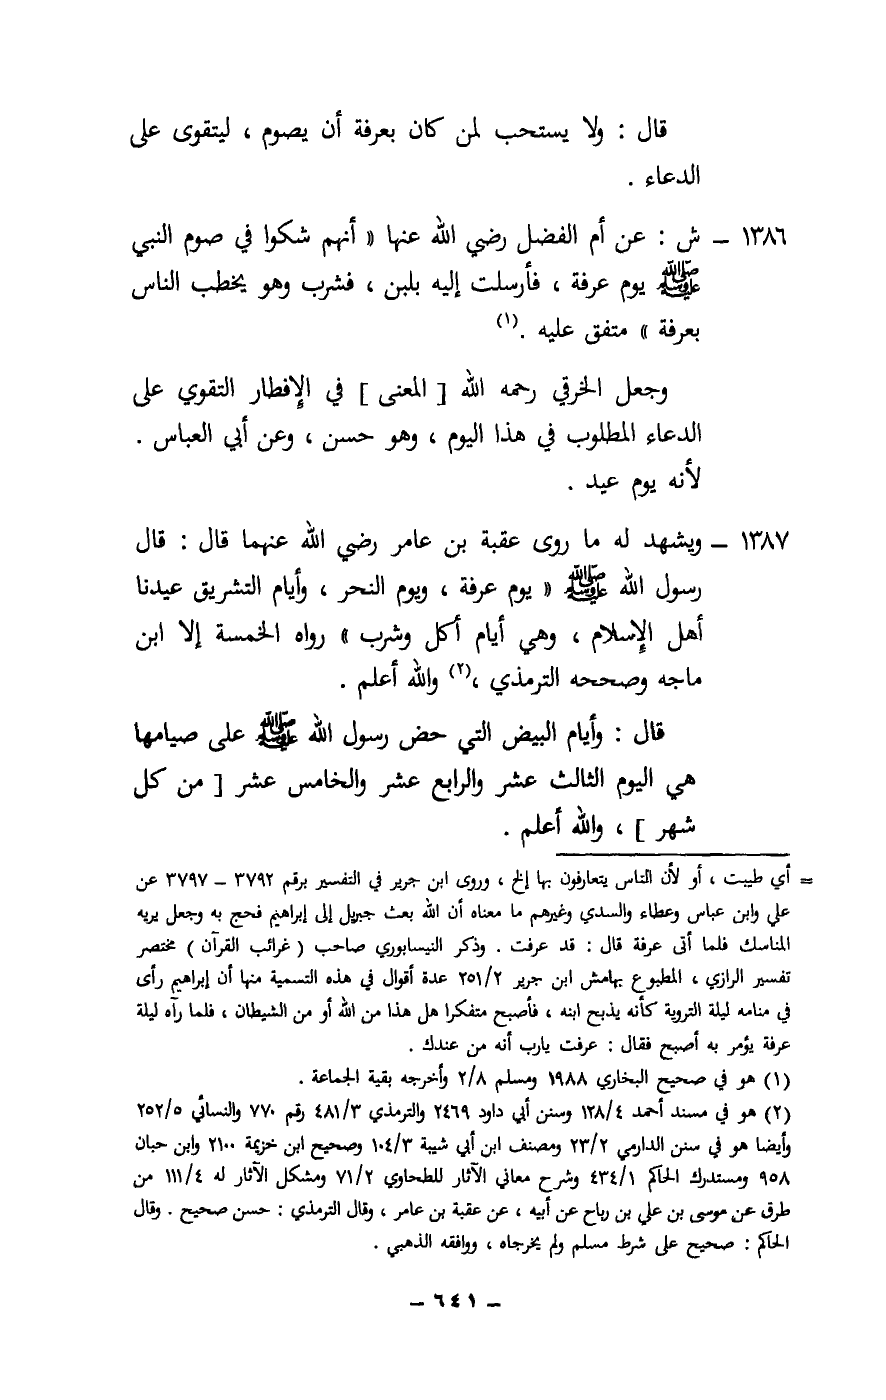 قال : ولا يستحب لمن كان بعرفة أن يصوم ، ليتقوى على
الدعاء .
١٣٨٦ – ش : عن أم الفضل رضي الله عنها « أنهم شكوا في صوم النبي
ﷺ يوم عرفة ، فأرسلت إليه بلبن ، فشرب وهو يخطب الناس
بعرفة » متفق عليه .(١)
وجعل الخرقي رحمه الله [ المعنى ] في الإفطار التقوي على
الدعاء المطلوب في هذا اليوم ، وهو حسن ، وعن أبي العباس .
لأنه يوم عيد .
١٣٨٧ – ويشهد له ما روى عقبة بن عامر رضي الله عنهما قال : قال
رسول الله ﷺ « يوم عرفة ، ويوم النحر ، وأيام التشريق عيدنا
أهل الإسلام ، وهي أيام أكل وشرب » رواه الخمسة إلا ابن
ماجه وصححه الترمذي ،(٢) والله أعلم .
قال : وأيام البيض التي حض رسول الله ﷺ على صيامها
هي اليوم الثالث عشر والرابع عشر والخامس عشر [ من كل
شهر ] ، والله أعلم .
= أي طيبت ، أو لأن الناس يتعارفون بها إلخ ، وروى ابن جرير في التفسير برقم ٣٧٩٢ – ٣٧٩٧ عن
علي وابن عباس وعطاء والسدي وغيرهم ما معناه أن الله بعث جبريل إلى إبراهيم فحج به وجعل يريه
المناسك فلما أتى عرفة قال : قد عرفت . وذكر النيسابوري صاحب ( غرائب القرآن ) مختصر
تفسير الرازي ، المطبوع بهامش ابن جرير ٢٥١/٢ عدة أقوال في هذه التسمية منها أن إبراهيم رأى
في منامه ليلة التروية كأنه يذبح ابنه ، فأصبح متفكرا هل هذا من الله أو من الشيطان ، فلما رآه ليلة
عرفة يؤمر به أصبح فقال : عرفت يارب أنه من عندك .
(١) هو في صحيح البخاري ١٩٨٨ ومسلم ٢/٨ وأخرجه بقية الجماعة .
(٢) هو في مسند أحمد ١٢٨/٤ وسنن أبي داود ٢٤٦٩ والترمذي ٤٨١/٣ رقم ٧٧٠ والنسائي ٢٥٢/٥
وأيضا هو في سنن الدارمي ٢٣/٢ ومصنف ابن أبي شيبة ١٠٤/٣ وصحيح ابن خزيمة ٢١٠٠ وابن حبان
٩٥٨ ومستدرك الحاكم ٤٣٤/١ وشرح معاني الآثار للطحاوي ٧١/٢ ومشكل الآثار له ١١١/٤ من
طرق عن موسى بن علي بن رباح عن أبيه ، عن عقبة بن عامر ، وقال الترمذي : حسن صحيح . وقال
الحاكم : صحيح على شرط مسلم ولم يخرجاه ، ووافقه الذهبي .
– ٦٤١ –